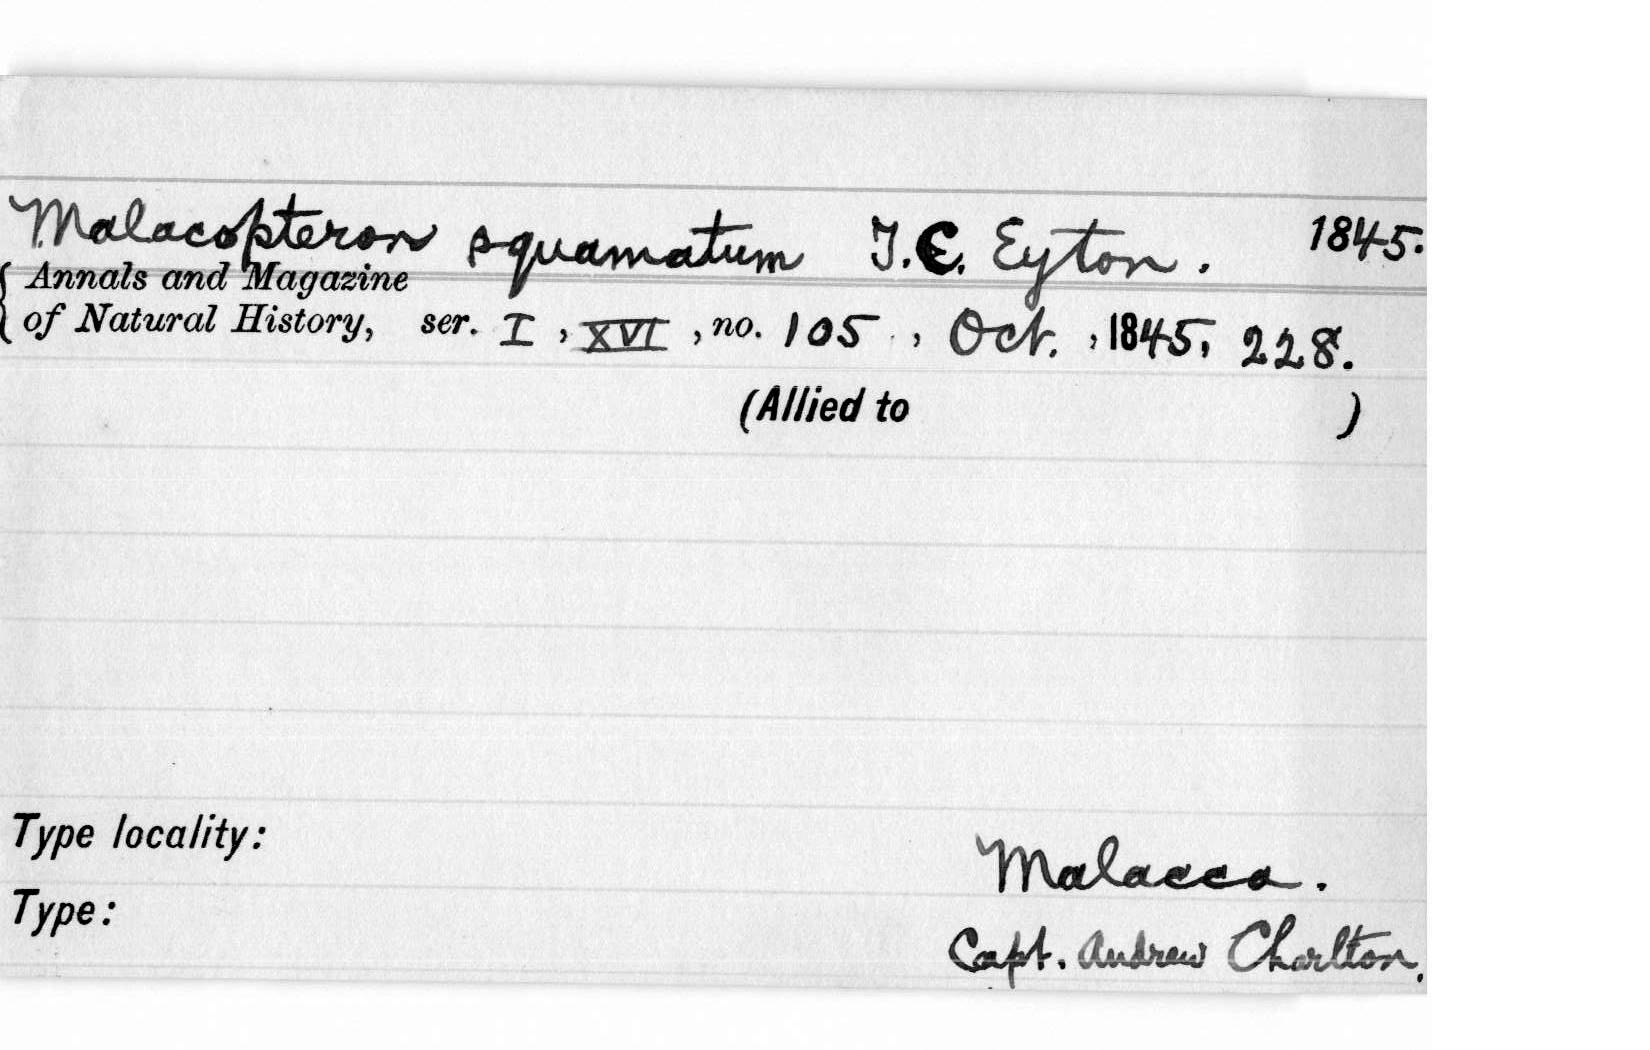 Malacopteron squamatum T.C. Eyton. 1845.
{ Annals and Magazine
of Natural History, ser. I, XVI, no. 105, Oct., 1845, 228.
(Allied to )
Type locality: Malacca.
Type: Capt. Andrew Charlton.